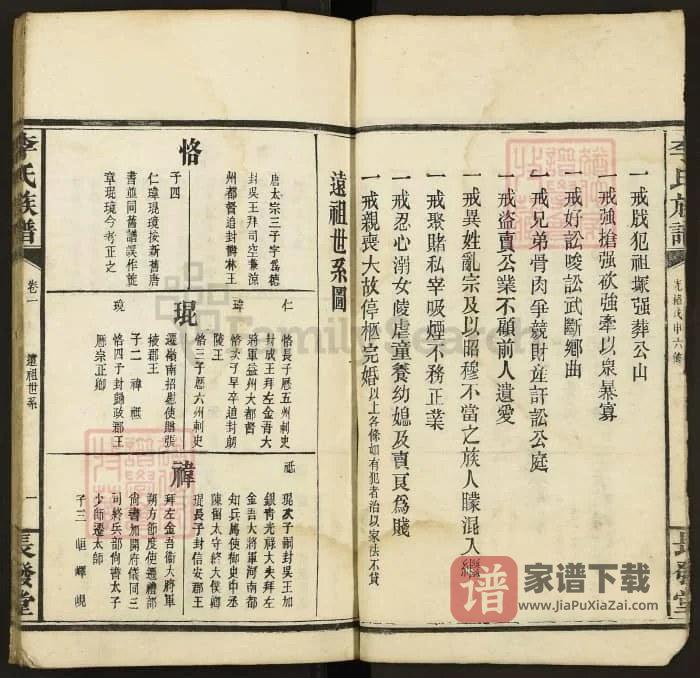 李氏族譜
光緒戊申六修
長發堂
一戒戕犯祖塚强葬公山
一戒強搶强欲強牽以衆暴寡
一戒好訟唆訟武斷鄉曲
一戒兄弟骨肉爭競財產訐訟公庭
一戒盜賣公業不顧前人遺愛
一戒異姓亂宗及以昭穆不當之族人矇混入繼
一戒聚賭私宰吸煙不務正業
一戒忍心溺女陵虐童養幼媳及賣良爲賤
一戒親喪大故停柩完婚以上各條如有犯者治以家法不貸
遠祖世系圖
恪
唐太宗三子字爲德
封吳王拜司空兼涼
州都督追封鬱林王
子四
仁瑋琨璄按新舊唐
書並同舊譜誤作煌
章琨璄今考正之
仁
恪長子歷五州刺史
封成王拜左金吾大
將軍益州大都督
瑋
恪次子早卒追封朗
陵王
琨
恪三子歷六州刺史
遷嶺南招慰使贈張
掖郡王
子二 禕 祗
璄
恪四子封歸政郡王
歷宗正卿
祗
琨次子嗣封吳王加
銀青光祿大夫拜左
金吾大將軍河南都
知兵馬使御史中丞
陳留太守終太僕卿
禕
琨長子封信安郡王
拜左金吾衞大將軍
朔方節度使遷禮部
尙書加開府儀同三
司終兵部尙書太子
少師遷太師
子三 峘 嶧 峴
李氏族譜
卷一
遠祖世系
一
長發堂
FamilySearch
谱
家谱下载
www.JiaPuXiaZai.com